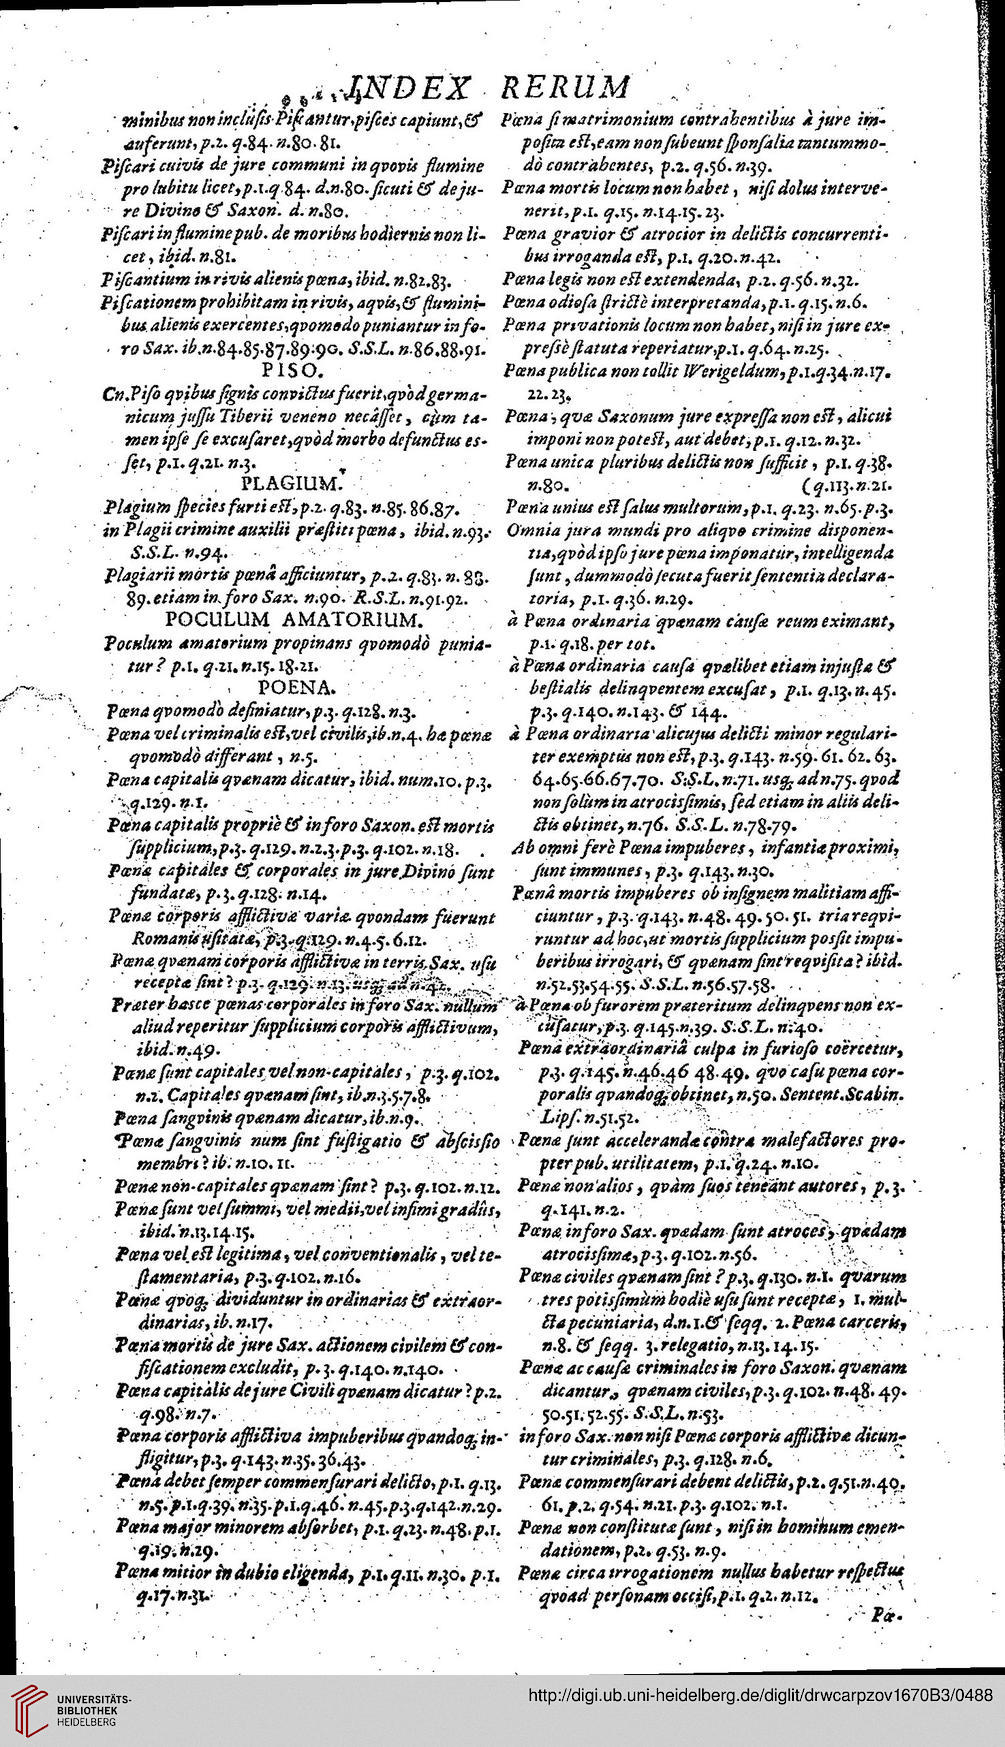 INDEX RERUM
minibus non inclusis Piscantur, pisces capiunt, &
auferunt, p.2. q.84. n.80. 81.
Piscari cuivis de jure communi in qvovis flumine
pro lubitu licet, p.1. q.84. d.n.80. sicuti & de ju-
re Divino & Saxon. d. n.80.
Piscari in flumine pub. de moribus hodiernis non li-
cet, ibid. n.81.
Piscantium in rivis alienis pœna, ibid. n.82.83.
Piscationem prohibitam in rivis, aqvis, & flumini-
bus alienis exercentes, qvomodo puniantur in fo-
ro Sax. ib. n.84.85.87.89.90. S.S.L. n.86.88.91.
PISO.
Cn. Piso qvibus signis convictus fuerit, qvòd germa-
nicum jussu Tiberii veneno necâsset, cùm ta-
men ipse se excusaret, qvòd morbo defunctus es-
set, p.1. q.21. n.3.
PLAGIUM.
Plagium species furti est, p.2. q.83. n.85. 86.87.
in Plagii crimine auxilii præstiti pœna, ibid. n.93.
S.S.L. n.94.
Plagiarii mortis pœnâ afficiuntur, p.2. q.83. n. 88.
89. etiam in foro Sax. n.90. R.S.L. n.91.92.
POCULUM AMATORIUM.
Poculum amatorium propinans qvomodò punia-
tur? p.1. q.21. n.15. 18.21.
POENA.
Pœna qvomodò definiatur, p.3. q.128. n.3.
Pœna vel criminalis est, vel civilis, ib. n.4. hæ pœnæ
qvomodò differant, n.5.
Pœna capitalis qvænam dicatur, ibid. num.10. p.3.
q.129. n.1.
Pœna capitalis propriè & in foro Saxon. est mortis
supplicium, p.3. q.129. n.2.3. p.3. q.102. n.18.
Pœnæ capitales & corporales in jure Divino sunt
fundatæ, p.3. q.128. n.14.
Pœnæ corporis afflictivæ variæ qvondam fuerunt
Romanis usitatæ, p.3. q.129. n.4.5. 6.12.
Pœnæ qvænam corporis afflictivæ in terris Sax. usu
receptæ sint? p.3. q.129. n.13. usq; ad n.42.
Præter hasce pœnas corporales in foro Sax. nullum
aliud reperitur supplicium corporis afflictivum,
ibid. n.49.
Pœnæ sunt capitales vel non-capitales, p.3. q.102.
n.2. Capitales qvænam sint, ib. n.3.5.7.8.
Pœna sangvinis qvænam dicatur, ib. n.9.
Pœnæ sangvinis num sint fustigatio & abscissio
membri? ib. n.10. 11.
Pœnæ non-capitales qvænam sint? p.3. q.102. n.12.
Pœnæ sunt vel summi, vel medii, vel infimi gradûs,
ibid. n.13.14.15.
Pœna vel est legitima, vel conventionalis, vel te-
stamentaria, p.3. q.102. n.16.
Pœnæ qvoq; dividuntur in ordinarias & extraor-
dinarias, ib. n.17.
Pœna mortis de jure Sax. actionem civilem & con-
fiscationem excludit, p.3. q.140. n.140.
Pœna capitalis de jure Civili qvænam dicatur? p.2.
q.98. n.7.
Pœna corporis afflictiva impuberibus qvandoq; in-
fligitur, p.3. q.143. n.35. 36.43.
Pœna debet semper commensurari delicto, p.1. q.13.
n.5. p.1. q.39. n.35. p.1. q.46. n.45. p.3. q.142. n.29.
Pœna major minorem absorbet, p.1. q.23. n.48. p.1.
q.19. n.29.
Pœna mitior in dubio eligenda, p.1. q.11. n.30. p.1.
q.17. n.31.
Pœna si matrimonium contrahentibus à jure im-
posita est, eam non subeunt sponsalia tantummo-
dò contrahentes, p.2. q.56. n.39.
Pœna mortis locum non habet, nisi dolus interve-
nerit, p.1. q.15. n.14.15. 23.
Pœna gravior & atrocior in delictis concurrenti-
bus irroganda est, p.1. q.20. n.42.
Pœna legis non est extendenda, p.2. q.56. n.32.
Pœna odiosa strictè interpretanda, p.1. q.15. n.6.
Pœna privationis locum non habet, nisi in jure ex-
pressè statuta reperiatur, p.1. q.64. n.25.
Pœna publica non tollit Werigeldum, p.1. q.34. n.17.
22. 23.
Pœna, qvæ Saxonum jure expressa non est, alicui
imponi non potest, aut debet, p.1. q.12. n.32.
Pœna unica pluribus delictis non sufficit, p.1. q.38.
n.80. (q.113. n.21.
Pœna unius est salus multorum, p.1. q.23. n.65. p.3.
Omnia jura mundi pro aliqvo crimine disponen-
tia, qvòd ipso jure pœna imponatur, intelligenda
sunt, dummodò secuta fuerit sententia declara-
toria, p.1. q.36. n.29.
à Pœna ordinaria qvænam causæ reum eximant,
p.1. q.18. per tot.
à Pœna ordinaria causa qvælibet etiam injusta &
bestialis delinqventem excusat, p.1. q.13. n.45.
p.3. q.140. n.143. & 144.
à Pœna ordinaria alicujus delicti minor regulari-
ter exemptus non est, p.3. q.143. n.59. 61. 62. 63.
64.65.66.67.70. S.S.L. n.71. usq; ad n.75. qvod
non solùm in atrocissimis, sed etiam in aliis deli-
ctis obtinet, n.76. S.S.L. n.78.79.
Ab omni ferè Pœna impuberes, infantiæ proximi,
sunt immunes, p.3. q.143. n.30.
Pœnâ mortis impuberes ob insignem malitiam affi-
ciuntur, p.3. q.143. n.48. 49. 50. 51. tria reqvi-
runtur ad hoc, ut mortis supplicium possit impu-
beribus irrogari, & qvænam sint reqvisita? ibid.
n.52.53.54.55. S.S.L. n.56.57.58.
à Pœna ob furorem præteritum delinqvens non ex-
cusatur, p.3. q.145. n.39. S.S.L. n.40.
Pœnâ extraordinariâ culpa in furioso coërcetur,
p.3. q.145. n.46.46 48.49. qvo casu pœna cor-
poralis qvandoq; obtinet, n.50. Sentent. Scabin.
Lips. n.51.52.
Pœnæ sunt accelerandæ contra malefactores pro-
pter pub. utilitatem, p.1. q.24. n.10.
Pœnæ non alios, qvàm suos teneant autores, p.3.
q.141. n.2.
Pœnæ in foro Sax. qvædam sunt atroces, qvædam
atrocissimæ, p.3. q.102. n.56.
Pœnæ civiles qvænam sint? p.3. q.130. n.1. qvarum
tres potissimùm hodiè usu sunt receptæ, 1. mul-
cta pecuniaria, d.n.1. & seqq. 2. Pœna carceris,
n.8. & seqq. 3. relegatio, n.13. 14. 15.
Pœnæ ac causæ criminales in foro Saxon. qvænam
dicantur, qvænam civiles, p.3. q.102. n.48. 49.
50.51. 52.55. S.S.L. n.53.
in foro Sax. non nisi Pœnæ corporis afflictivæ dicun-
tur criminales, p.3. q.128. n.6.
Pœnæ commensurari debent delictis, p.2. q.51. n.40.
61. p.2. q.54. n.21. p.3. q.102. n.1.
Pœnæ non constitutæ sunt, nisi in hominum emen-
dationem, p.2. q.53. n.9.
Pœnæ circa irrogationem nullus habetur respectus
qvoad personam occisi, p.1. q.2. n.12.
Pœ-
UNIVERSITÄTS-
BIBLIOTHEK
HEIDELBERG
http://digi.ub.uni-heidelberg.de/diglit/drwcarpzov1670B3/0488